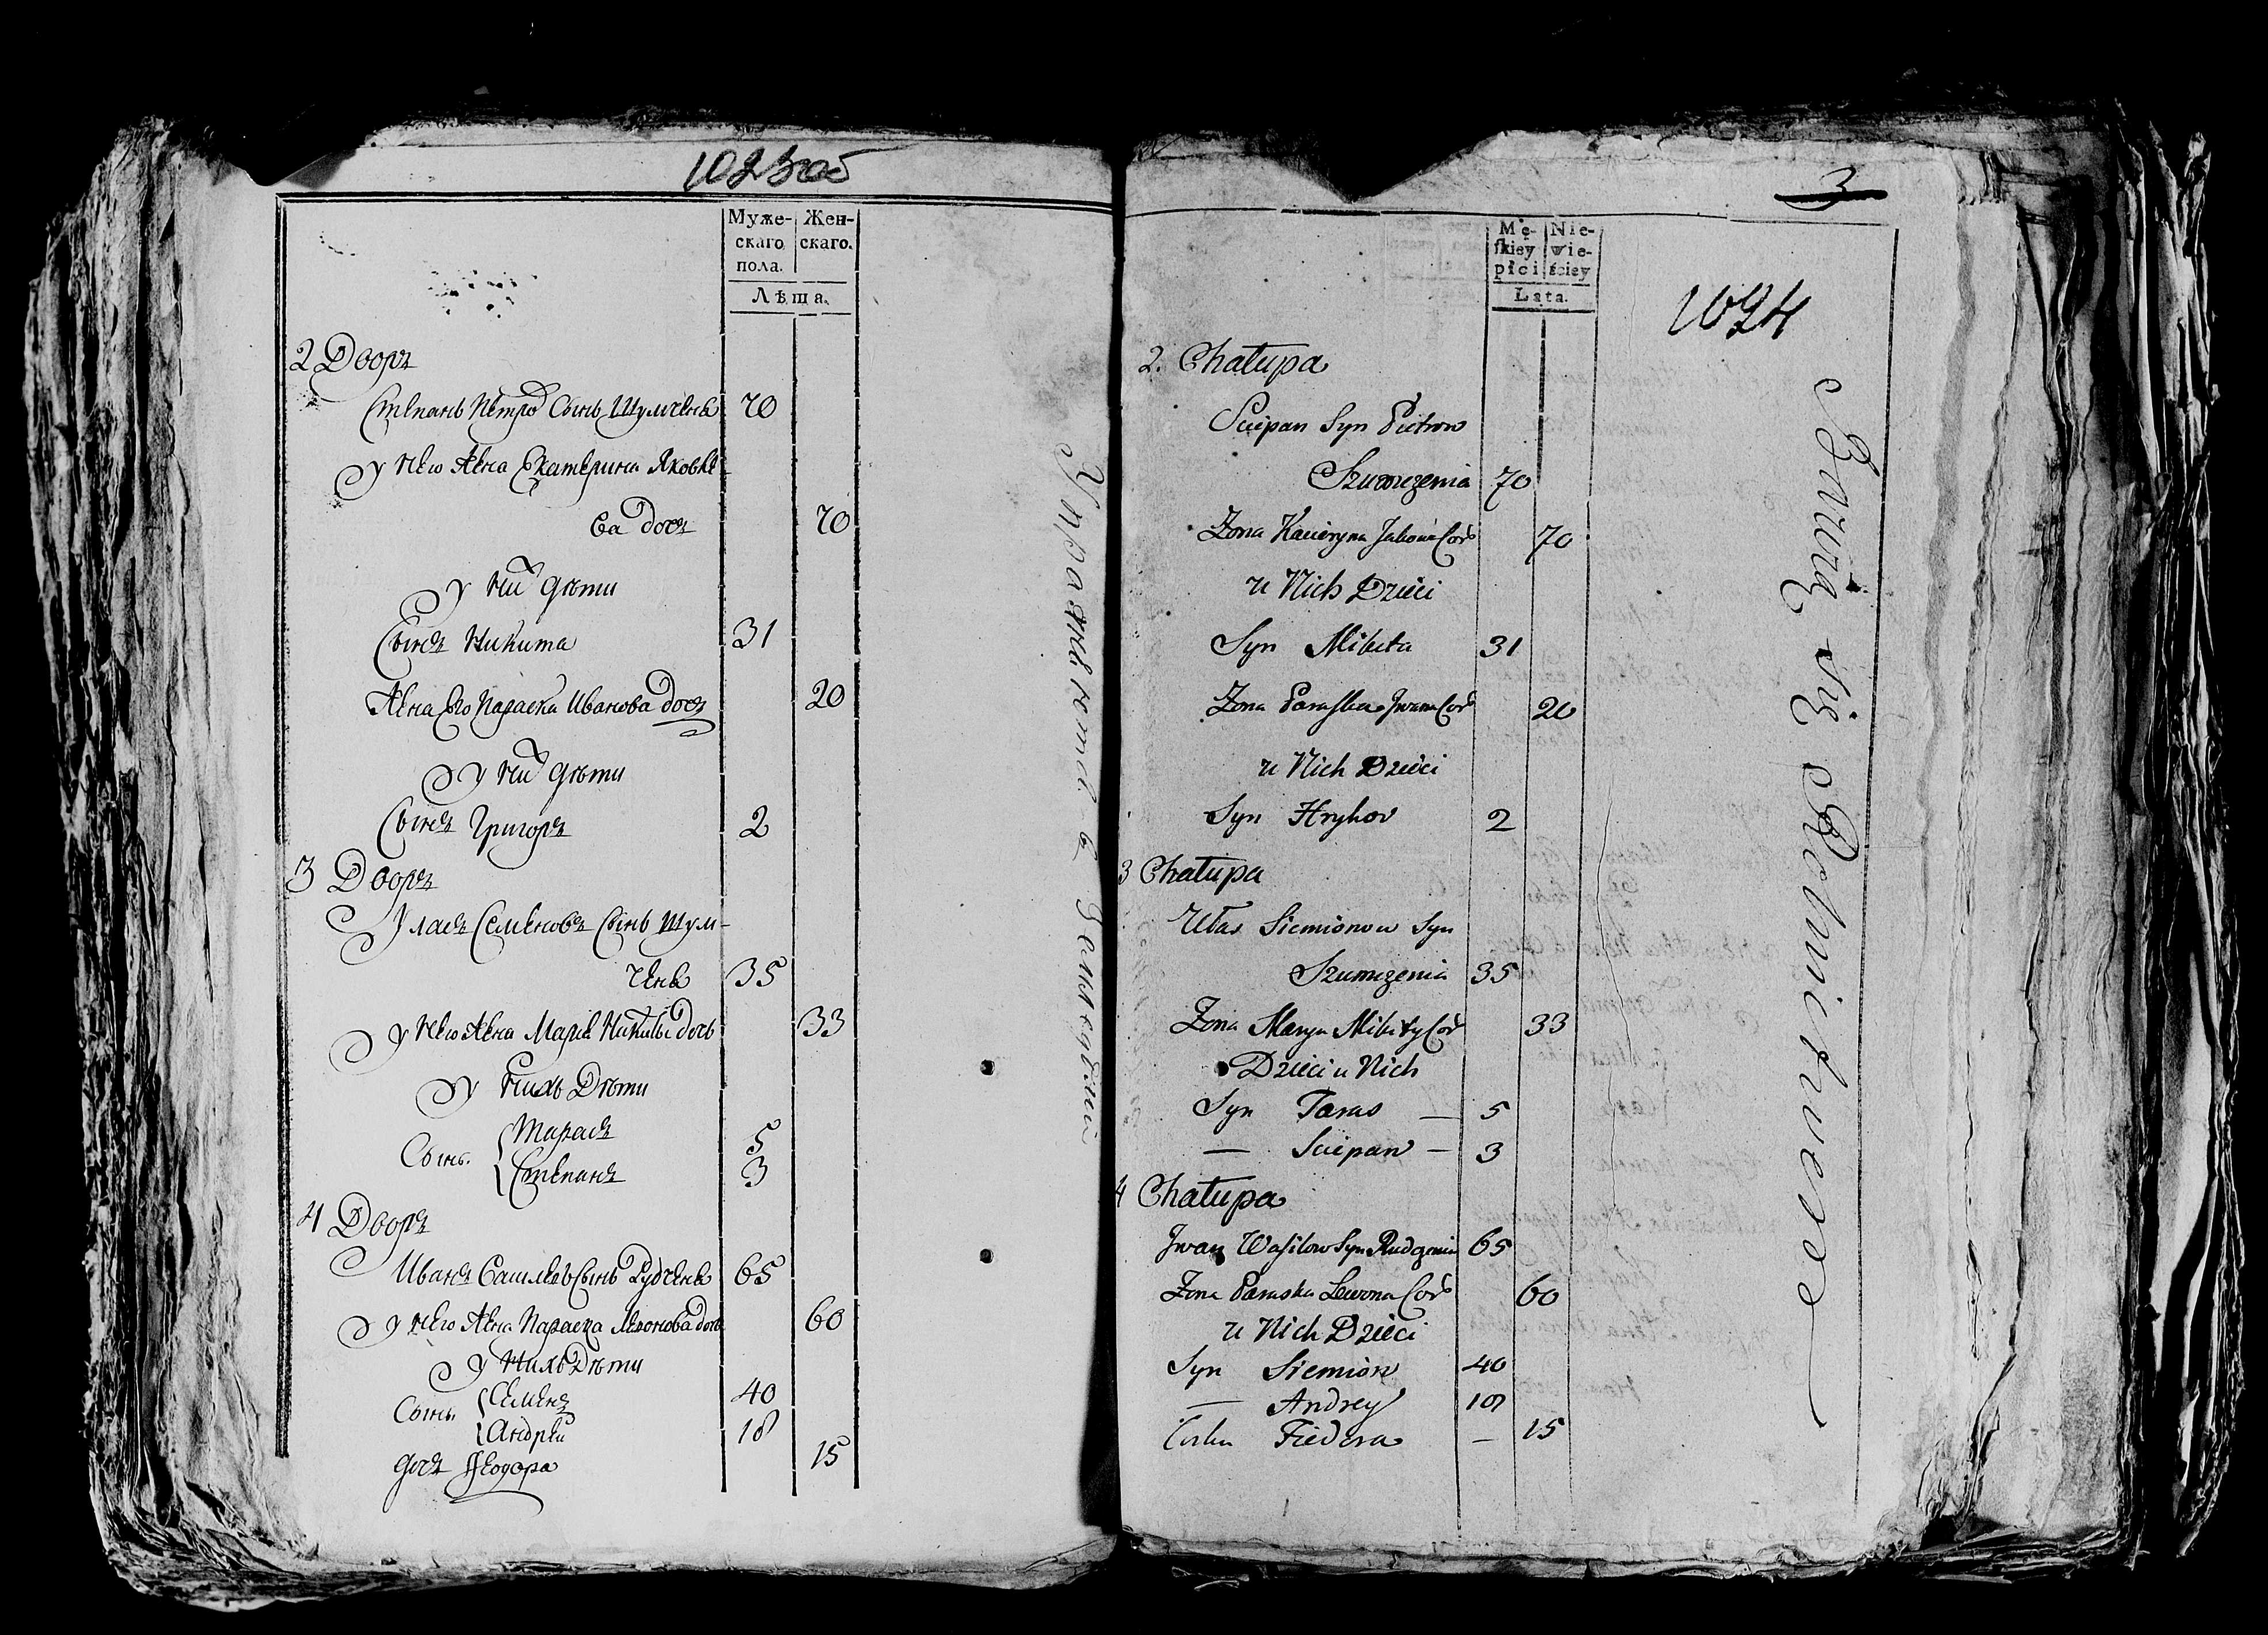 1023 об
Муже- Жен-
скаго скаго.
пола.
Лѣта.
2 Дворъ
Степанъ Петро Сынъ Шумченя 70
у него жена Екатерина Яковле
ва дочь 70
у ни дѣти
Сынъ Никита 31
жена его Параска Иванова дочь 20
у ни дѣти
Сынъ Григоръ 2
3 Дворъ
Уласъ Семеновъ Сынъ Шум-
ченя 35
у него жена Маря Никиты дочь 33
у нихъ Дѣти
Сынъ. Тарасъ 5
Степанъ 3
4 Дворъ
Иванъ Василевъ Сынъ Рудченя 65
у него жена Параска Левонова дочь 60
у нихъ Дѣти
Сынъ. Семенъ 40
Андрей 18
дочь Ѳеодора 15
3
Mę- Nie-
skiey wie-
płci ściey
Lata.
1024
2. Chałupa
Sciepan Syn Pietrow
Szumczenia 70
Żona Kacieryna Jakowa Cor 70
u Nich Dzieci
Syn Mikita 31
Żona Paraska Jwana Cor 20
u Nich Dzieci
Syn Hryhor 2
3 Chałupa
Ułas Siemionow Syn
Szumczenia 35
Żona Marya Mikity Cor 33
Dzieci u Nich
Syn Taras — 5
— Sciepan — 3
4 Chałupa
Jwan Wasilow Syn Rudczenia 65
Żona Paraska Lewona Cor 60
u Nich Dzieci
Syn Siemion 40
— Andrey 18
Corka Fiedora — 15